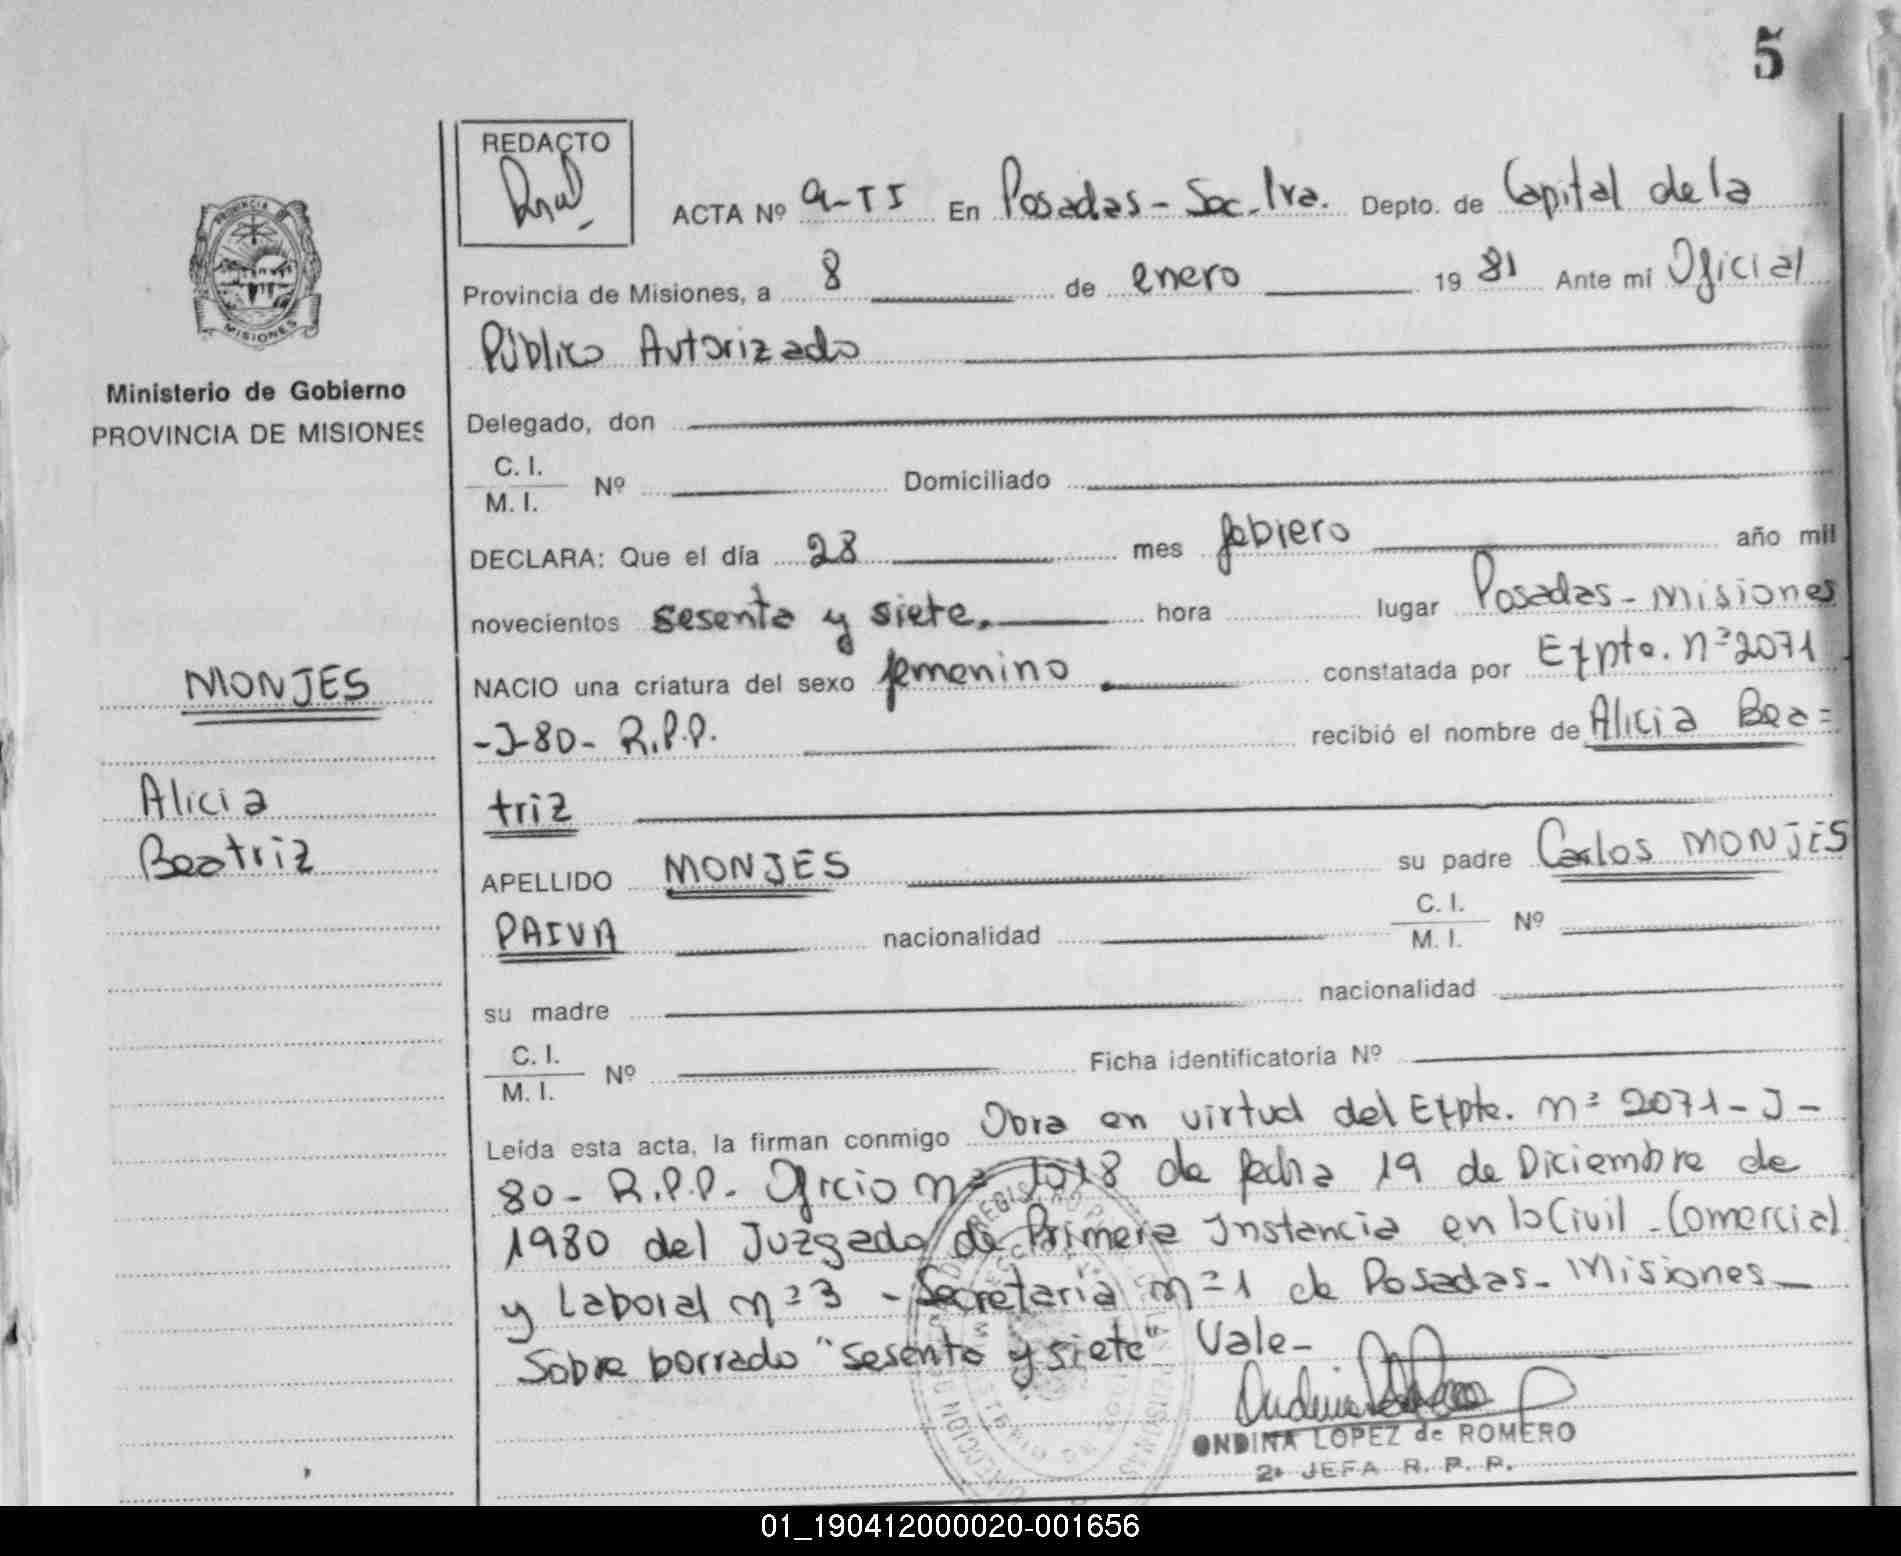 5
REDACTO
ACTA Nº 9-TI En Posadas - Sec. 1ra. Depto. de Capital de la
Provincia de Misiones, a 8 de enero 1981 Ante mi Oficial
Público Autorizado
PROVINCIA DE
MISIONES
Ministerio de Gobierno
PROVINCIA DE MISIONES
Delegado, don
C. I.
M. I. Nº Domiciliado
DECLARA: Que el día 28 mes febrero año mil
novecientos sesenta y siete. hora lugar Posadas - Misiones
MONJES
NACIO una criatura del sexo femenino constatada por Expte. nº 2071
-J-80- R.P.P. recibió el nombre de Alicia Bea=
Alicia
Beatriz
triz
APELLIDO MONJES su padre Carlos MONJES
PAIVA nacionalidad C. I.
M. I. Nº
su madre nacionalidad
C. I.
M. I. Nº Ficha identificatoria Nº
Leída esta acta, la firman conmigo Obra en virtud del Expte. nº 2071 - J -
80 - R.P.P. Oficio nº 1018 de fecha 19 de Diciembre de
1980 del Juzgado de Primera Instancia en lo Civil - Comercial
y Laboral nº 3 - Secretaría nº 1 de Posadas - Misiones
Sobre borrado "sesenta y siete" Vale -
ONDINA LOPEZ de ROMERO
2ª JEFA R. P. P.
01_190412000020-001656